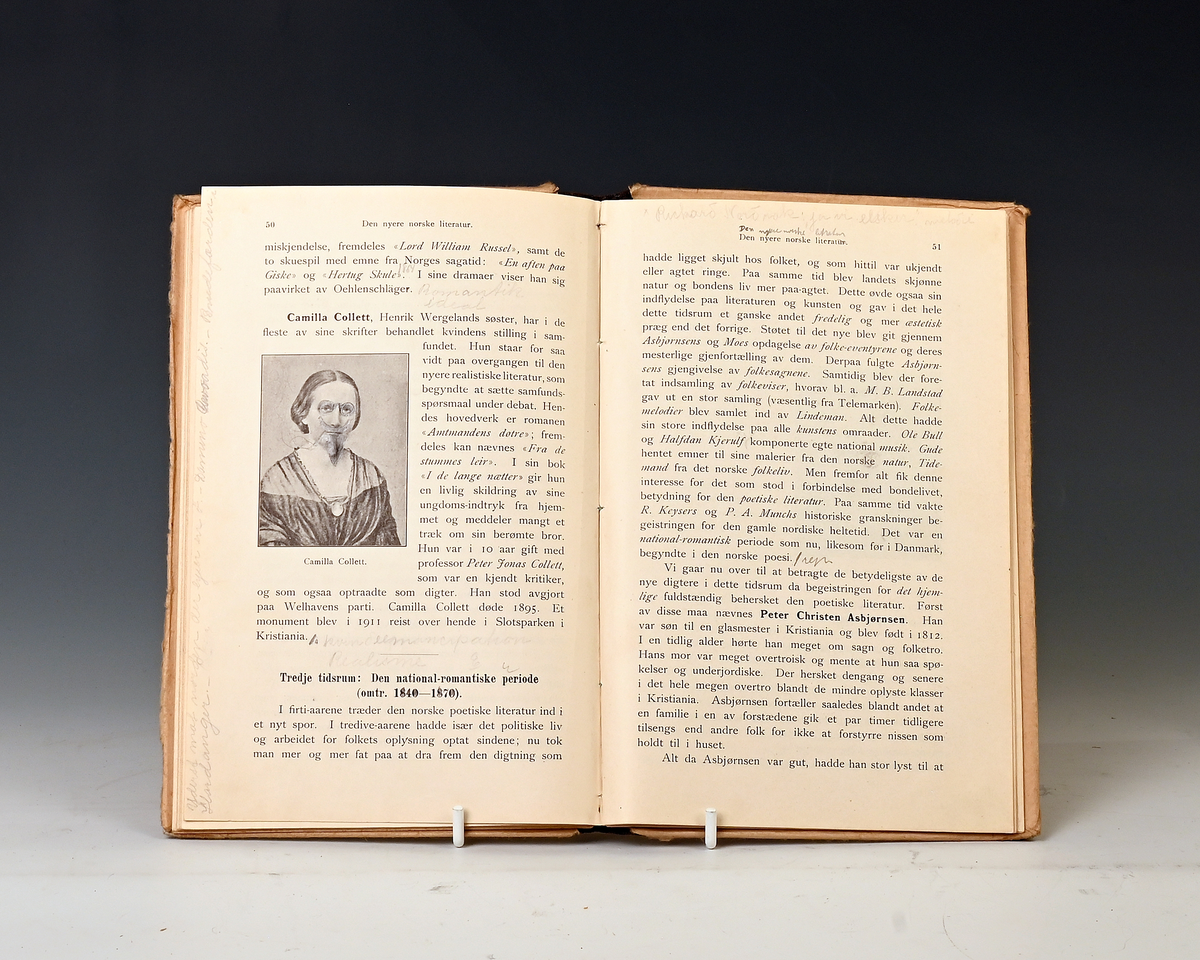 50
Den nyere norske literatur.
miskjendelse, fremdeles «Lord William Russel», samt de
to skuespil med emne fra Norges sagatid: «En aften paa
Giske» og «Hertug Skule». I sine dramaer viser han sig
paavirket av Oehlenschläger. Romantisk
Camilla Collett, Henrik Wergelands søster, har i de
fleste av sine skrifter behandlet kvindens stilling i sam-
fundet. Hun staar for saa
vidt paa overgangen til den
nyere realistiske literatur, som
begyndte at sætte samfunds-
spørsmaal under debat. Hen-
des hovedverk er romanen
«Amtmandens døtre»; frem-
deles kan nævnes «Fra de
stummes leir». I sin bok
«I de lange nætter» gir hun
en livlig skildring av sine
ungdoms-indtryk fra hjem-
met og meddeler mangt et
træk om sin berømte bror.
Hun var i 10 aar gift med
professor Peter Jonas Collett,
som var en kjendt kritiker,
Camilla Collett.
og som ogsaa optraadte som digter. Han stod avgjort
paa Welhavens parti. Camilla Collett døde 1895. Et
monument blev i 1911 reist over hende i Slotsparken i
Kristiania. kvindeemancipation
Realisme
Tredje tidsrum: Den national-romantiske periode
(omtr. 1840—1870).
I firti-aarene træder den norske poetiske literatur ind i
et nyt spor. I tredive-aarene hadde især det politiske liv
og arbeidet for folkets oplysning optat sindene; nu tok
man mer og mer fat paa at dra frem den digtning som
Den nyere norske
Den nyere norske literatur.
51
hadde ligget skjult hos folket, og som hittil var ukjendt
eller agtet ringe. Paa samme tid blev landets skjønne
natur og bondens liv mer paa-agtet. Dette øvde ogsaa sin
indflydelse paa literaturen og kunsten og gav i det hele
dette tidsrum et ganske andet fredelig og mer æstetisk
præg end det forrige. Støtet til det nye blev git gjennem
Asbjørnsens og Moes opdagelse av folke-eventyrene og deres
mesterlige gjenfortælling av dem. Derpaa fulgte Asbjørn-
sens gjengivelse av folkesagnene. Samtidig blev der fore-
tat indsamling av folkeviser, hvorav bl. a. M. B. Landstad
gav ut en stor samling (væsentlig fra Telemarken). Folke-
melodier blev samlet ind av Lindeman. Alt dette hadde
sin store indflydelse paa alle kunstens omraader. Ole Bull
og Halfdan Kjerulf komponerte egte national musik. Gude
hentet emner til sine malerier fra den norske natur, Tide-
mand fra det norske folkeliv. Men fremfor alt fik denne
interesse for det som stod i forbindelse med bondelivet,
betydning for den poetiske literatur. Paa samme tid vakte
R. Keysers og P. A. Munchs historiske granskninger be-
geistringen for den gamle nordiske heltetid. Det var en
national-romantisk periode som nu, likesom før i Danmark,
begyndte i den norske poesi.
Vi gaar nu over til at betragte de betydeligste av de
nye digtere i dette tidsrum da begeistringen for det hjem-
lige fuldstændig behersket den poetiske literatur. Først
av disse maa nævnes Peter Christen Asbjørnsen. Han
var søn til en glasmester i Kristiania og blev født i 1812.
I en tidlig alder hørte han meget om sagn og folketro.
Hans mor var meget overtroisk og mente at hun saa spø-
kelser og underjordiske. Der hersket dengang og senere
i det hele megen overtro blandt de mindre oplyste klasser
i Kristiania. Asbjørnsen fortæller saaledes blandt andet at
en familie i en av forstædene gik et par timer tidligere
tilsengs end andre folk for ikke at forstyrre nissen som
holdt til i huset.
Alt da Asbjørnsen var gut, hadde han stor lyst til at